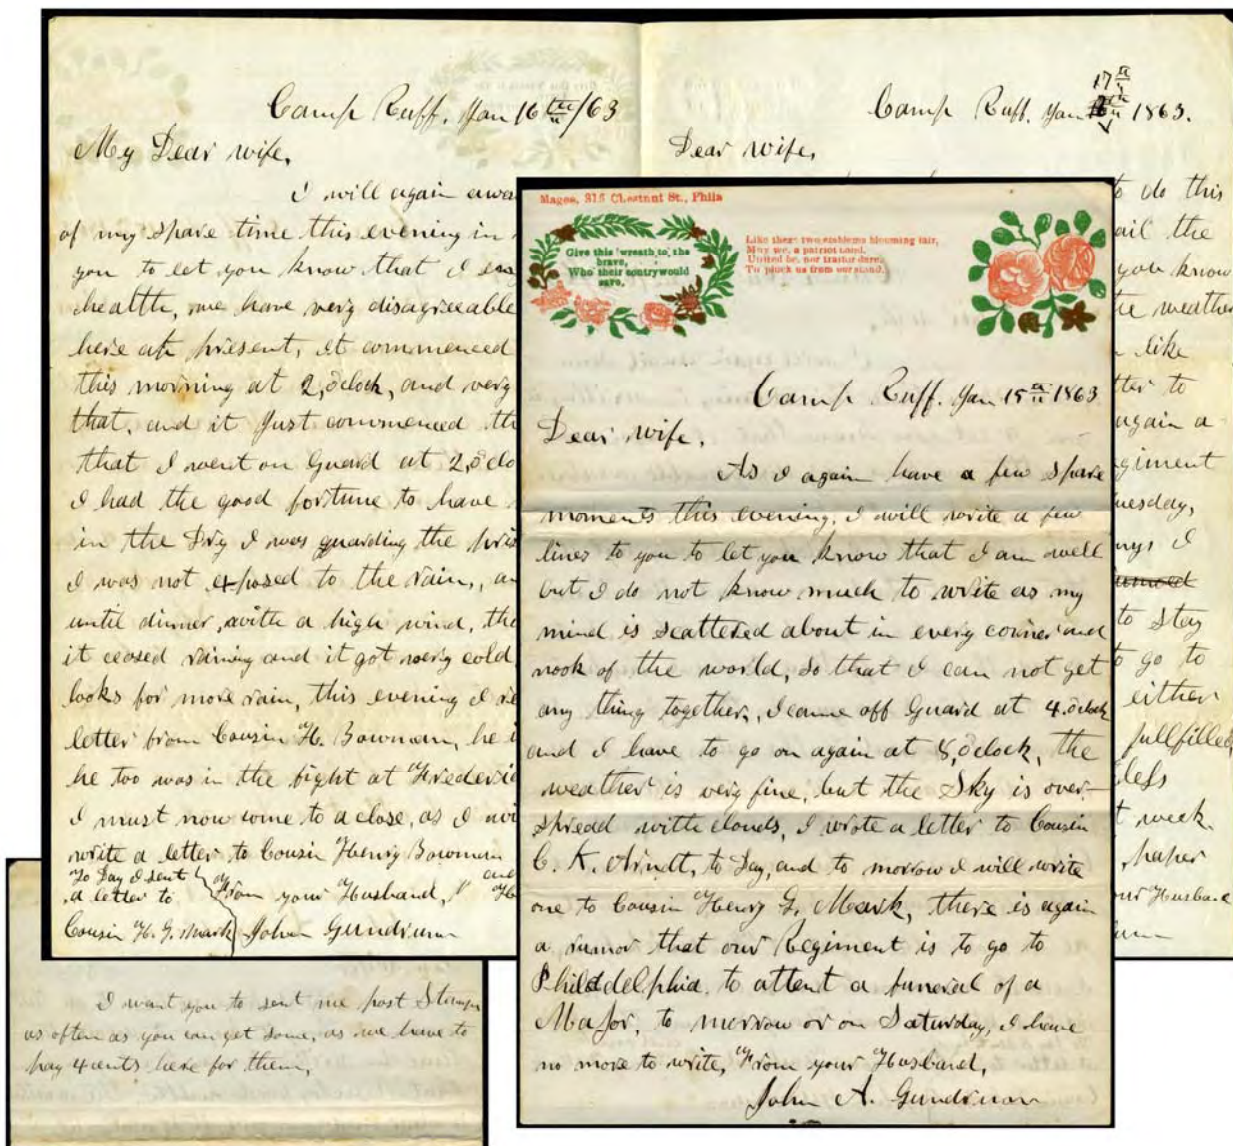 Camp Ruff. Jan 16th/63
My Dear wife,
I will again
of my spare time this evening in
you to let you know that I
health, we have very disagreeable
here at present, it commenced
this morning at 2,oclock, and very
that, and it Just commenced
that I went on Guard at 2,
I had the good fortune to have
in the Dry I was guarding the
I was not exposed to the rain,
until dinner, with a high wind,
it ceased raining and it got very cold,
looks for more rain, this evening I
letter from Cousin H. Bowman, he
he too was in the fight at
I must now come to a close, as I
write a letter to Cousin Henry Bowman
To Day I sent
a letter to
Cousin H. G. Mark
From your Husband,
and
John Gundrum
Camp Ruff. Jan 17th 1863.
Dear wife,
to do this
the
you know
weather
like
to
again a
Tuesday,
I
to stay
to go to
either
fullfilled
week.
paper
Husband
Magee, 316 Chestnut St., Phila
Give this wreath to the
brave,
Who their contry would
save.
Like these two emblems blooming fair,
May we, a patriot band,
United be, nor traitor dare,
To pluck us from our stand.
Camp Ruff. Jan 15th 1863
Dear wife,
As I again have a few spare
moments this evening, I will write a few
lines to you to let you know that I am well
but I do not know much to write as my
mind is scattered about in every corner and
nook of the world, so that I can not get
any thing together, I came off Guard at 4.oclock
and I have to go on again at 8,oclock, the
weather is very fine, but the Sky is over-
spread with clouds, I wrote a letter to Cousin
C. K. Arndt, to Day, and to morrow I will write
one to Cousin Henry G. Mark, there is again
a rumor that our Regiment is to go to
Philadelphia, to attent a funeral of a
Major, to morrow or on Saturday, I have
no more to write, From your Husband,
John A. Gundrum
I want you to sent me post Stamps
as often as you can get some, as we have to
pay 4 cents here for them,